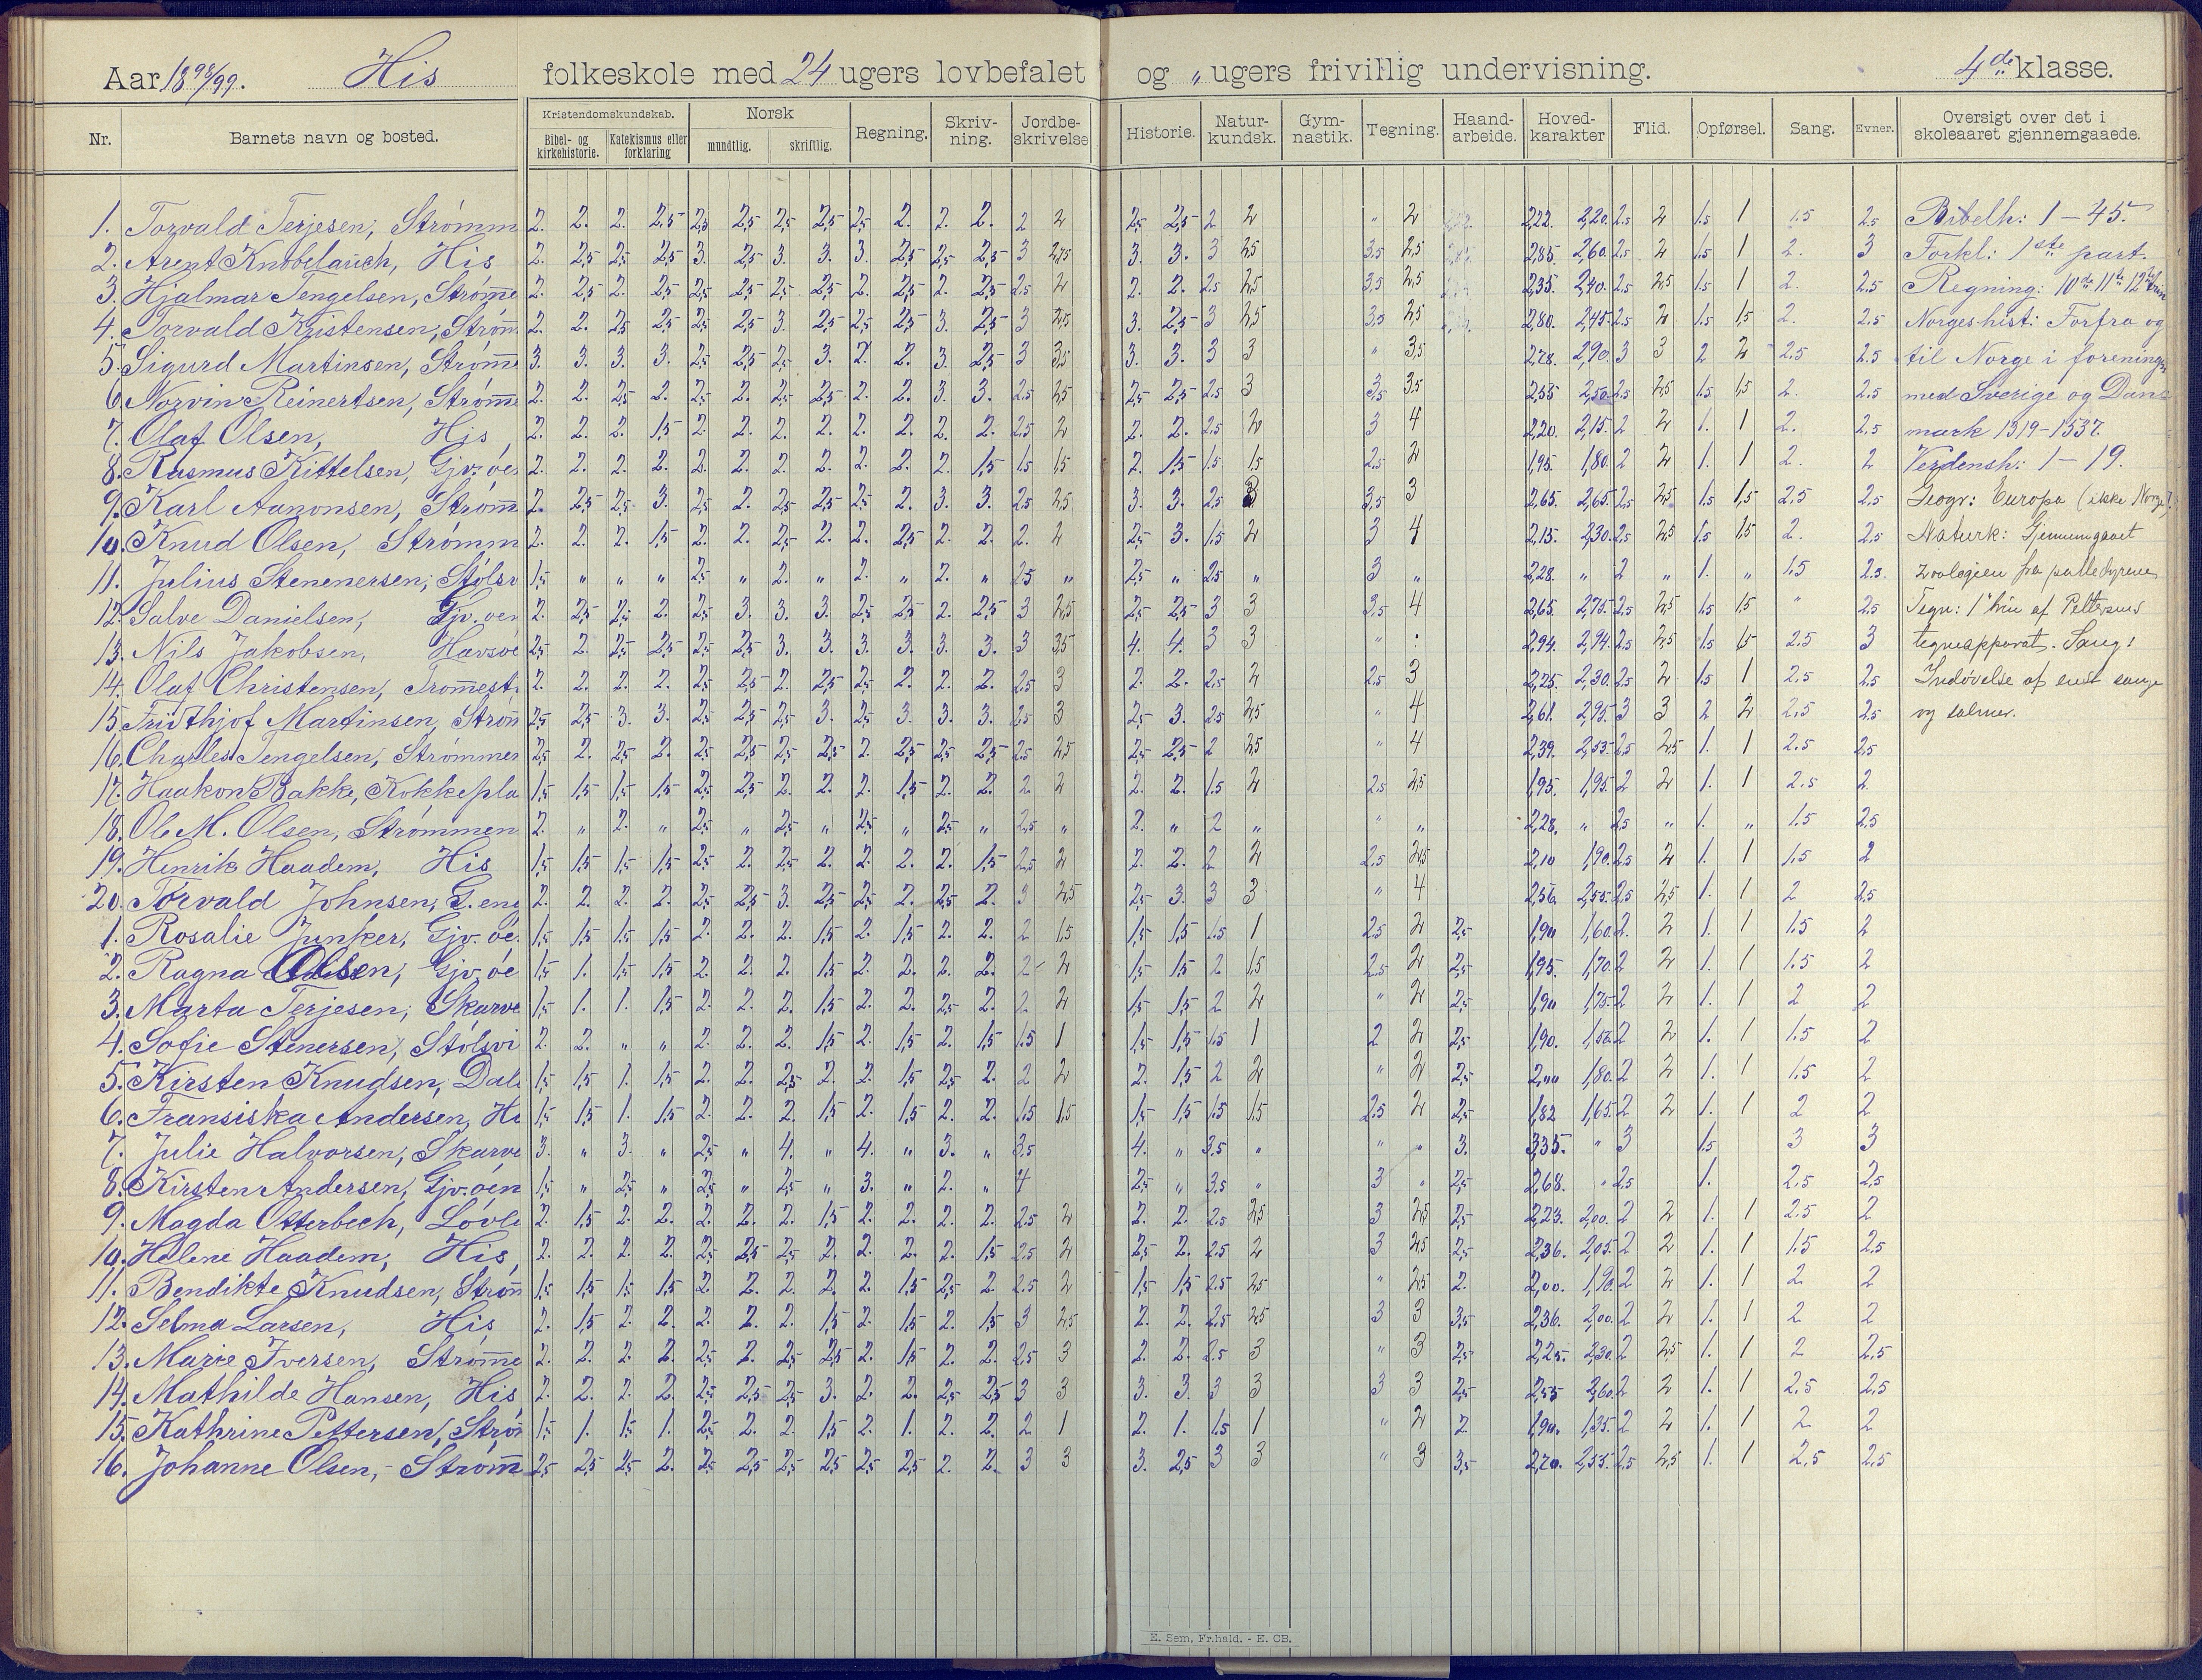 Aar 1898/99. His folkeskole med 24 ugers lovbefalet og „ ugers frivillig undervisning. 4de klasse.
Nr. Barnets navn og bosted. Kristendomskundskab. Bibel- og kirkehistorie. Katekismus eller forklaring Norsk mundtlig. skriftlig. Regning. Skriv-ning. Jordbe-skrivelse Historie. Natur-kundsk. Gym-nastik. Tegning. Haand-arbeide. Hoved-karakter Flid. Opførsel. Sang. Evner. Oversigt over det i skoleaaret gjennemgaaede.
1. Torvald Terjesen, Strømm 2. 2. 2. 2,5 2,5 2,5 2,5 2,5 2,5 2. 2. 2. 2 2 2,5 2,5 2 2 „ 2 2,22. 2,20. 2.5 2 1.5 1 1.5 2.5 Bibelh: 1-45.
2. Arent Knobelauch, His 2. 2,5 2,5 2,5 3. 2,5 3. 3. 3. 2,5 2,5 2,5 3 2,75 3. 3. 3 2,5 3,5 2,5 2,85. 2,60. 2.5 2 1.5 1 2. 3 Forkl: 1ste part.
3. Hjalmar Tengelsen, Strømme 2. 2,5 2. 2,5 2,5 2,5 2,5 2,5 2. 2,5 2. 2,5 2.5 2 2. 2. 2.5 2,5 3,5 2,5 2,35. 2,40. 2.5 2,5 1.5 1 2. 2.5 Regning: 10de 11te 12te trin
4. Torvald Kristensen, Strøm 2. 2. 2,5 2,5 2,5 2,5 3. 2,5 2,5 2,5 3. 2,5 3 2,5 3. 2,5 3 2,5 3,5 2,5 2,80. 2,45. 2.5 2 1.5 1,5 2. 2.5 Norgeshist: Forfra og
5. Sigurd Martinsen, Strømme 3. 3. 3. 3. 2,5 2,5 2,5 3. 2. 2. 3. 2,5 3 3,5 3. 3. 3 3 „ 3,5 2,78. 2,90. 3 3 2 2 2.5 2.5 til Norge i foreningen
6. Norvin Reinertsen, Strømme 2. 2. 2,5 2. 2,5 2. 2,5 2,5 2. 2. 3. 3. 2.5 2,5 2,5 2,5 2.5 3 3,5 3,5 2,55 2,50. 2.5 2,5 1.5 1,5 2. 2.5 med Sverige og Dan
7. Olaf Olsen, His 2. 2. 2. 1,5 2. 2. 2. 2. 2. 2. 2. 2. 2.5 2 2. 2. 2.5 2 3 4 2,20. 2,15. 2 2 1. 1 2. 2.5 mark 1319-1537.
8. Rasmus Kittelsen, Gjv.øe 2. 2. 2. 2. 2. 2. 2. 2. 2. 2. 2. 1,5 1.5 1,5 2. 1,5 1.5 1,5 2.5 2 1,95. 1,80. 2 2 1. 1 2. 2 Verdensh: 1-19.
9. Karl Aanonsen, Strømm 2. 2,5 2,5 3. 2,5 2. 2,5 2,5 2,5 2. 3. 3. 2.5 2,5 3. 3. 2.5 3 3,5 3 2,65. 2,65. 2.5 2,5 1.5 1,5 2.5 2.5 Geogr: Europa (ikke Norge).
10. Knud Olsen, Strømm 2. 2. 2. 1,5 2. 2. 2,5 2. 2. 2,5 2. 2. 2. 2 2,5 3. 1.5 2 3 4 2,15. 2,30. 2.5 2,5 1.5 1,5 2. 2.5 Naturk: Gjennemgaaet
11. Julius Stennersen, Stølsv 1,5 „ „ „ 2,5 „ 2. „ 2. „ 2. „ 2.5 „ 2,5 „ 2.5 „ 3 „ 2,28. „ 2 „ 1. „ 1.5 2.5. zoologien fra pattedyrene
12. Salve Danielsen, Gjv.øen 2. 2,5 2,5 2. 2,5 3. 3. 3. 2,5 2,5 2. 2,5 3 2,5 2,5 2,5 3 3 3,5 4 2,65. 2,75. 2.5 2,5 1.5 1,5 „ 2.5 Tegn: 1ste trin af Pettersens
13. Nils Jakobsen, Havsøe 2,5 2. 2,5 2,5 2,5 2,5 3. 3. 3. 3. 3. 3. 3 3,5 4. 4. 3 3 „ : 2,94. 2,94. 2.5 2,5 1.5 1,5 2.5 3 tegneapparat. Sang:
14. Olaf Christensen, Tromest. 2. 2. 2. 2. 2,5 2,5 2. 2,5 2,5 2. 2. 2. 2.5 3 2. 2. 2.5 2 2.5 3 2,25. 2,30. 2.5 2 1.5 1 2.5 2.5 Indøvelse af enst. sange
15. Fridthjof Martinsen, Strøm 2,5 2,5 3. 3. 2,5 2,5 2,5 3. 2,5 3. 3. 3. 2.5 3 2,5 3. 2.5 2,5 „ 4 2,61. 2,95. 3 3 2 2 2.5 2.5 og salmer.
16. Charles Tengelsen, Strømmen 2,5 2. 2,5 2. 2,5 2,5 2,5 2,5 2. 2,5 2,5 2,5 2.5 2,5 2,5 2,5 2 2,5 „ 4 2,39. 2,55. 2.5 2,5 1. 1 2.5 2.5
17. Haakon Bakke, Kokkepla 1,5 1,5 1,5 1,5 2,5 2,5 2. 2. 2. 1,5 2. 2. 2 2 2. 2. 1.5 2 2.5 2,5 1,95. 1,95. 2 2 1. 1 2.5 2
18. Ole M. Olsen, Strømmen 2. „ 2. „ 2,5 „ 2,5 „ 2,5 „ 2,5 „ 2.5 „ 2. „ 2 „ „ „ 2,28. „ 2.5 „ 1. „ 1.5 2.5
19. Henrik Haadem, His 1,5 1,5 1,5 1,5 2,5 2. 2,5 2. 2. 2. 2. 1,5 2.5 2 2. 2. 2 2 2.5 2,5 2,10 1,90. 2.5 2 1. 1 1.5 2
20. Torvald Johnsen, G.eng 2. 2. 2. 2. 2,5 2,5 3. 2,5 2,5 2. 2,5 2. 3 2,5 2,5 3. 3 3 „ 4 2,56. 2,55. 2.5 2,5 1. 1 2 2.5
1. Rosalie Junker, Gjv.øe. 1,5 1,5 1,5 1,5 2. 2. 2. 1,5 2. 1,5 2. 2. 2 1,5 1,5 1,5 1.5 1 2.5 2 2,5 1,90 1,60. 2. 2 1. 1 1.5 2
2. Ragna Olsen, Gjv.øe 1,5 1. 1,5 1,5 2. 2. 2. 1,5 2. 2. 2. 2. 2 2 1,5 1,5 2 1,5 2.5 2 2,5 1,95. 1,70. 2 2 1. 1 1.5 2
3. Marta Terjesen, Skarve 1,5 1. 1. 1,5 2. 2. 2. 1,5 2. 2. 2,5 2. 2 2 1,5 1,5 2 2 „ 2 2,5 1,90 1,75. 2 2 1. 1 2 2
4. Sofie Stenersen, Stølsvi 2. 2. „ „ 2. 2. 2. 1,5 2. 1,5 2. 1,5 1.5 1 1,5 1,5 1.5 1 2 2 2,5 1,90. 2 2 1. 1 1.5 2
5. Kirsten Knudsen, Dale 1,5 1,5 1. 1,5 2. 2. 2,5 2. 2. 1,5 2,5 2. 2 2 2. 1,5 2 2 „ 2 2,5 2,00 1,80. 2 2 1. 1 1.5 2
6. Fransiska Andersen, Hi 1,5 1,5 1. 1,5 2. 2. 2. 1,5 2. 1,5 2. 2. 1.5 1,5 1,5 1,5 1.5 1,5 2.5 2 2,5 1,82 1,65. 2 2 1. 1 2 2
7. Julie Halvorsen, Skarve 3. „ 3. „ 2,5 „ 4. „ 4. „ 3. „ 3.5 4. „ 3.5 „ „ „ 3. 3,35. „ 3 1.5 3 3
8. Kirsten Andersen, Gjv.øen 1,5 „ 2,5 „ 2,5 „ 2,5 „ 3. „ 2. „ 4 2,5 „ 3.5 „ 3 „ 2,5 2,68. „ 2.5 1. 2.5 2.5
9. Magda Otterbech, Løvle 2. 1,5 2. 2. 2. 2. 2. 1,5 2. 2. 2. 2. 2.5 2 2. 2. 2.5 2,5 3 2,5 2,5 2,23. 2,00. 2 2 1. 1 2.5 2
10. Helene Haadem, His, 2. 2. 2. 2. 2,5 2,5 2,5 2. 2. 2. 2. 1,5 2.5 2 2,5 2. 2.5 2 3 2,5 2,5 2,36. 2,05. 2 2 1. 1 1.5 2.5
11. Bendikte Knudsen, Strøm 1,5 1,5 1,5 1,5 2. 2. 2. 2. 2. 1,5 2,5 2. 2.5 2 1,5 1,5 2.5 2,5 „ 2,5 2. 2,00. 1,90. 2 2 1. 1 2 2
12. Selma Larsen, His 2. 1,5 2. 2. 2. 2. 2. 1,5 2. 1,5 2. 1,5 3 2,5 2. 2. 2.5 2,5 3 3 3,5 2,36. 2,00. 2 2 1. 1 2 2
13. Marie Iversen, Strømme 2. 2. 2. 2. 2,5 2. 2,5 2,5 2. 1,5 2. 2. 2.5 3 2. 2. 2.5 3 „ 3 2,5 2,25. 2,30. 2 2,5 1. 1 2 2.5
14. Mathilde Hansen, His 2. 2. 2. 2. 2,5 2,5 2,5 3. 2. 2. 2,5 2,5 3 3 3. 3. 3 3 3 3 2,5 2,55 2,60. 2 2 1. 1 2.5 2.5
15. Kathrine Pettersen, Strøm 1,5 1. 1,5 1. 2,5 2. 2. 1,5 2. 1. 2. 2. 2 1 2. 1. 1.5 1 „ 2 2 1,90. 1,35. 2 2 1. 1 2 2
16. Johanne Olsen,- Strømm 2,5 2,5 2,5 2. 2,5 2,5 2,5 2,5 2,5 2,5 2. 2. 3 3 3. 2,5 3 3 „ 3 3,5 2,70. 2,55. 2.5 2,5 1. 1 2.5 2.5
E. Sem, Fr.hald. - E. CB.